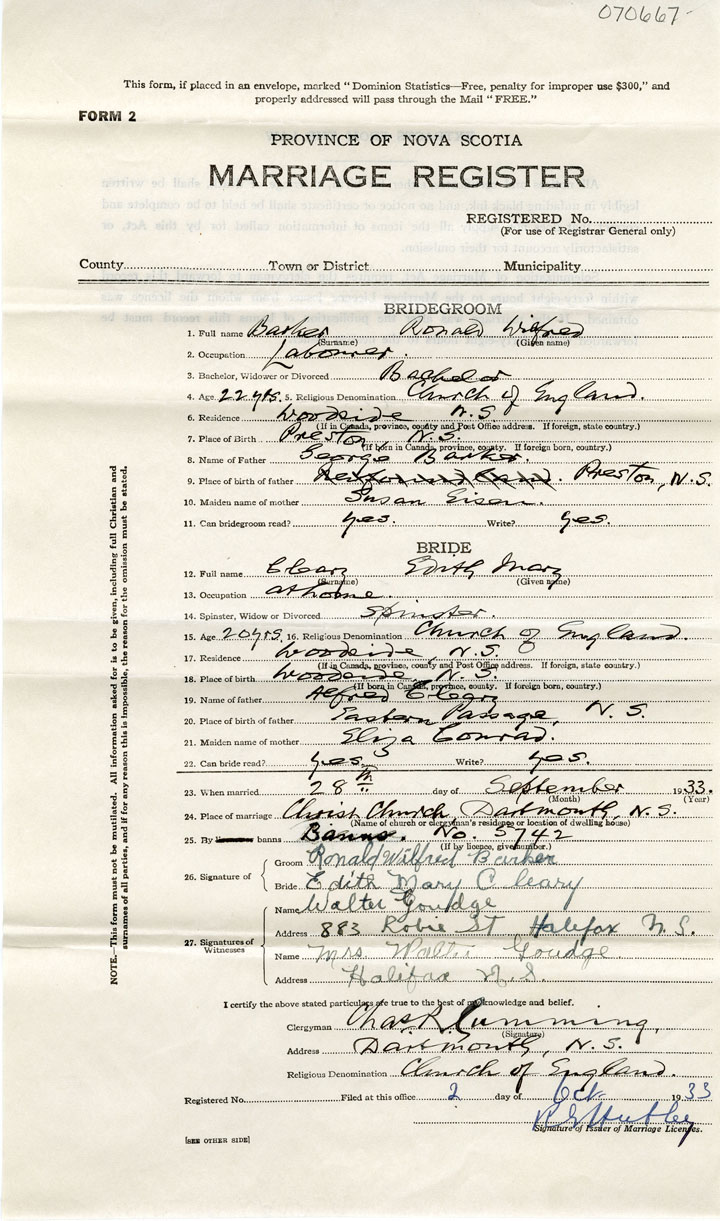 070667-
This form, if placed in an envelope, marked "Dominion Statistics—Free, penalty for improper use $300," and
properly addressed will pass through the Mail "FREE."
FORM 2
PROVINCE OF NOVA SCOTIA
MARRIAGE REGISTER
REGISTERED No.
(For use of Registrar General only)
County Town or District Municipality
BRIDEGROOM
1. Full name Barker Ronald Wilfred
(Surname) (Given name)
2. Occupation Labourer.
3. Bachelor, Widower or Divorced Bachelor
4. Age 22 yrs. 5. Religious Denomination Church of England.
6. Residence Woodside N.S
(If in Canada, province, county and Post Office address. If foreign, state country.)
7. Place of Birth Preston N.S.
(If born in Canada, province, county. If foreign born, country.)
8. Name of Father George Barker.
9. Place of birth of father Preston, N.S.
10. Maiden name of mother Susan Eisen.
11. Can bridegroom read? yes. Write? yes.
BRIDE
12. Full name Cleary Edith Mary
(Surname) (Given name)
13. Occupation at home.
14. Spinster, Widow or Divorced Spinster.
15. Age 20 yrs. 16. Religious Denomination Church of England.
17. Residence Woodside, N.S.
(If in Canada, province, county and Post Office address. If foreign, state country.)
18. Place of birth Woodside, N.S.
(If born in Canada, province, county. If foreign born, country.)
19. Name of father Alfred Cleary
20. Place of birth of father Eastern Passage, N.S.
21. Maiden name of mother Eliza Conrad.
22. Can bride read? yes. Write? yes.
23. When married 28th day of September 1933.
(Month) (Year)
24. Place of marriage Christ Church, Dartmouth, N.S.
(Name of church or clergyman's residence or location of dwelling house)
25. By banns Banns. No. 5742
(If by licence, give number.)
26. Signature of
Groom Ronald Wilfred Barker
Bride Edith Mary Cleary
27. Signatures of Witnesses
Name Walter Goudge
Address 883 Robie St Halifax N.S.
Name Mrs Walter Goudge
Address Halifax N.S.
I certify the above stated particulars are true to the best of my knowledge and belief.
Clergyman Chas R Cumming,
(Signature)
Address Dartmouth, N.S.
Religious Denomination Church of England.
Registered No. Filed at this office 2 day of Oct. 1933
Signature of Issuer of Marriage Licenses.
[SEE OTHER SIDE]
NOTE.—This form must not be mutilated. All information asked for is to be given, including full Christian and
surnames of all parties, and if for any reason this is impossible, the reason for the omission must be stated.